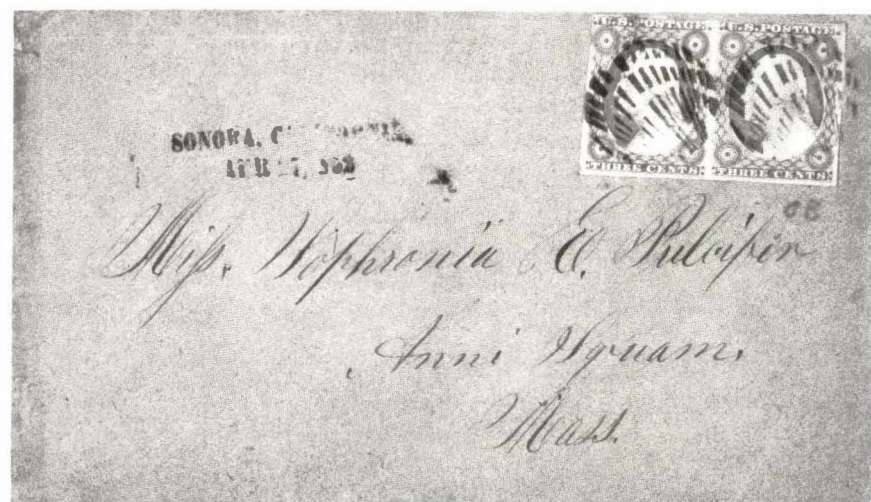 U.S. POSTAGE. U.S. POSTAGE.
THREE CENTS. THREE CENTS.
SONORA,
Miss. Sophronia E. Pulcifer
Anni Squam.
Mass.